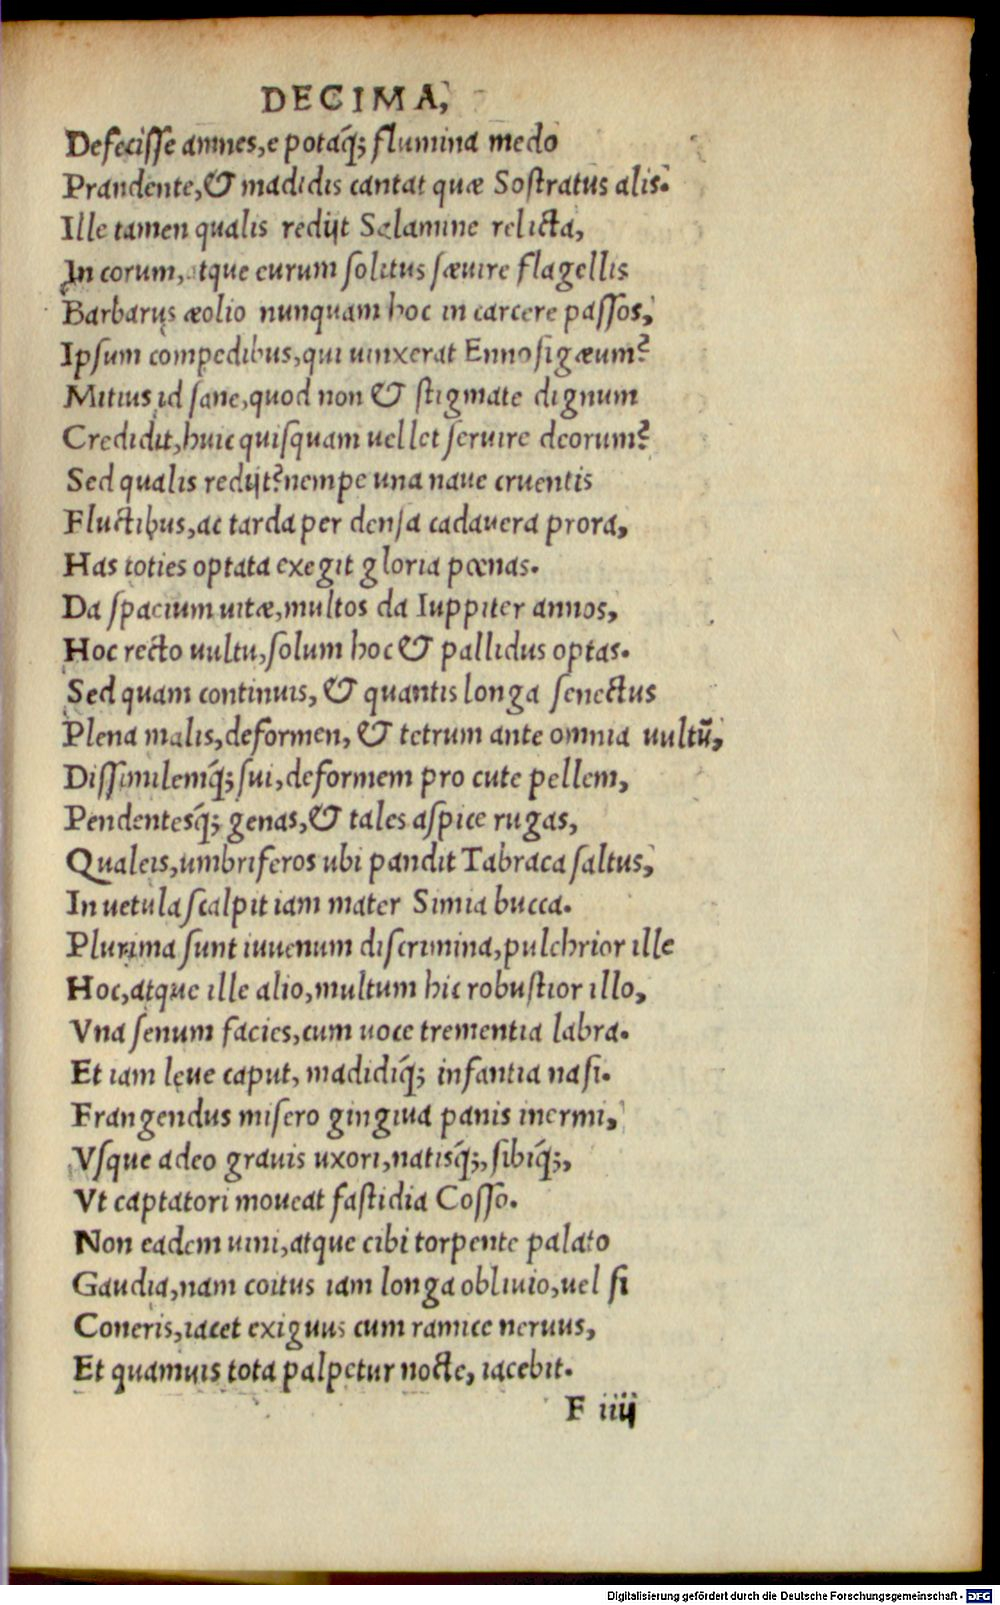 DECIMA,
Defecisse amnes, e potaq́; flumina medo
Prandente, & madidis cantat quæ Sostratus alis.
Ille tamen qualis redijt Salamine relicta,
In corum, atque eurum solitus sæuire flagellis
Barbarus æolio nunquam hoc in carcere passos,
Ipsum compedibus, qui uinxerat Ennosigæum?
Mitius id sane, quod non & stigmate dignum
Credidit, huic quisquam uellet seruire deorum?
Sed qualis redijt? nempe una naue cruentis
Fluctibus, ac tarda per densa cadauera prora,
Has toties optata exegit gloria pœnas.
Da spacium uitæ, multos da Iuppiter annos,
Hoc recto uultu, solum hoc & pallidus optas.
Sed quam continuis, & quantis longa senectus
Plena malis, deformen, & tetrum ante omnia uultū,
Dissimilemq́; sui, deformem pro cute pellem,
Pendentesq́; genas, & tales aspice rugas,
Qualeis, umbriferos ubi pandit Tabraca saltus,
In uetula scalpit iam mater Simia bucca.
Plurima sunt iuuenum discrimina, pulchrior ille
Hoc, atque ille alio, multum hic robustior illo,
Vna senum facies, cum uoce trementia labra.
Et iam leue caput, madidiq́; infantia nasi.
Frangendus misero gingiua panis inermi,
Vsque adeo grauis uxori, natisq́;, sibiq́;,
Vt captatori moueat fastidia Cosso.
Non eadem uini, atque cibi torpente palato
Gaudia, nam coitus iam longa obliuio, uel si
Coneris, iacet exiguus cum ramice neruus,
Et quamuis tota palpetur nocte, iacebit.
F iiij
Digitalisierung gefördert durch die Deutsche Forschungsgemeinschaft - DFG